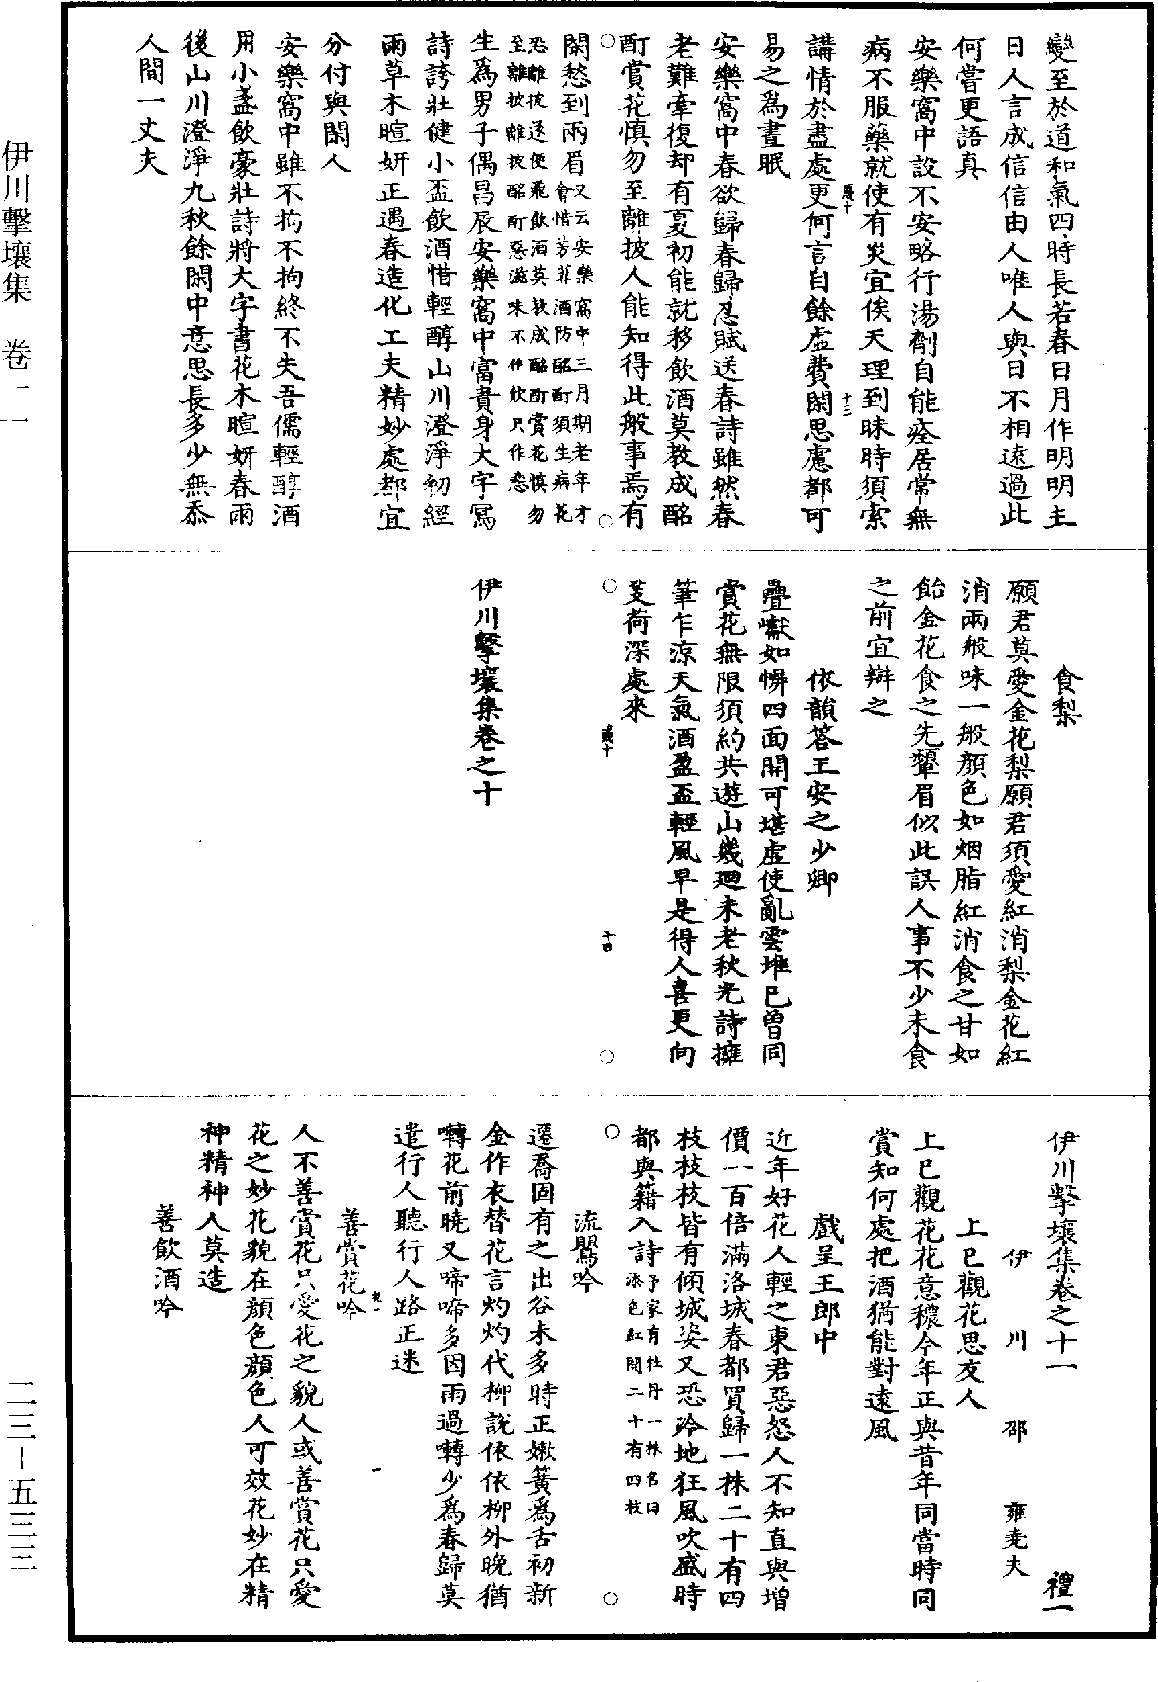 變至於道和氣四時長若春日月作明明主
日人言成信信由人唯人與日不相遠過此
何嘗更語真
安樂窩中設不安略行湯劑自能痊居常無
病不服藥就使有災宜俟天理到昧時須索
講情於盡處更何言自餘虛費閑思慮都可
易之為晝眠
安樂窩中春欲歸春歸忍賦送春詩雖然春
老難牽復却有夏初能就移飲酒莫教成酩
酊賞花慎勿至離披人能知得此般事焉有
閑愁到兩眉
又云安樂窩中三月期老年才
會惜芳菲酒防酩酊須生病花
恐離披遂便飛飲酒莫教成酩酊賞花慎勿
至離披離披酩酊惡滋味不作飲只作悲
生為男子偶昌辰安樂窩中富貴身大字寫
詩誇壯健小盃飲酒惜輕醇山川澄淨初經
雨草木暄妍正遇春造化工夫精妙處都宜
分付與閑人
安樂窩中雖不拘不拘終不失吾儒輕醇酒
用小盞飲豪壯詩將大字書花木暄妍春雨
後山川澄淨九秋餘閑中意思長多少無忝
人間一丈夫
十三
食梨
願君莫愛金花梨願君須愛紅消梨金花紅
消兩般味一般顏色如烟脂紅消食之甘如
飴金花食之先顰眉似此誤人事不少未食
之前宜辯之
依韻荅王安之少卿
疊巘如懈四面開可堪虛使亂雲堆已曾同
賞花無限須約共遊山幾迴未老秋光詩擁
筆乍涼天氣酒盈盃輕風早是得人喜更向
芰荷深處來
十四
伊川擊壤集卷之十
伊川擊壤集卷之十一 禮一
伊川 邵 雍堯夫
上巳觀花思友人
上巳觀花花意穠今年正與昔年同當時同
賞知何處把酒猶能對遠風
戲呈王郎中
近年好花人輕之東君惡怒人不知直與增
價一百倍滿洛城春都買歸一株二十有四
枝枝枝皆有傾城姿又恐冷地狂風吹盛時
都與籍入詩
予家有牡丹一株名曰
添色紅開二十有四枝
流鶯吟
遷喬固有之出谷未多時正嫩簧為舌初新
金作衣替花言灼灼代柳說依依柳外晚猶
囀花前曉又啼啼多因雨過囀少為春歸莫
遣行人聽行人路正迷
一
善賞花吟
人不善賞花只愛花之貌人或善賞花只愛
花之妙花貌在顏色顏色人可效花妙在精
神精神人莫造
善飲酒吟
伊川擊壤集 卷一一
二三－五三三